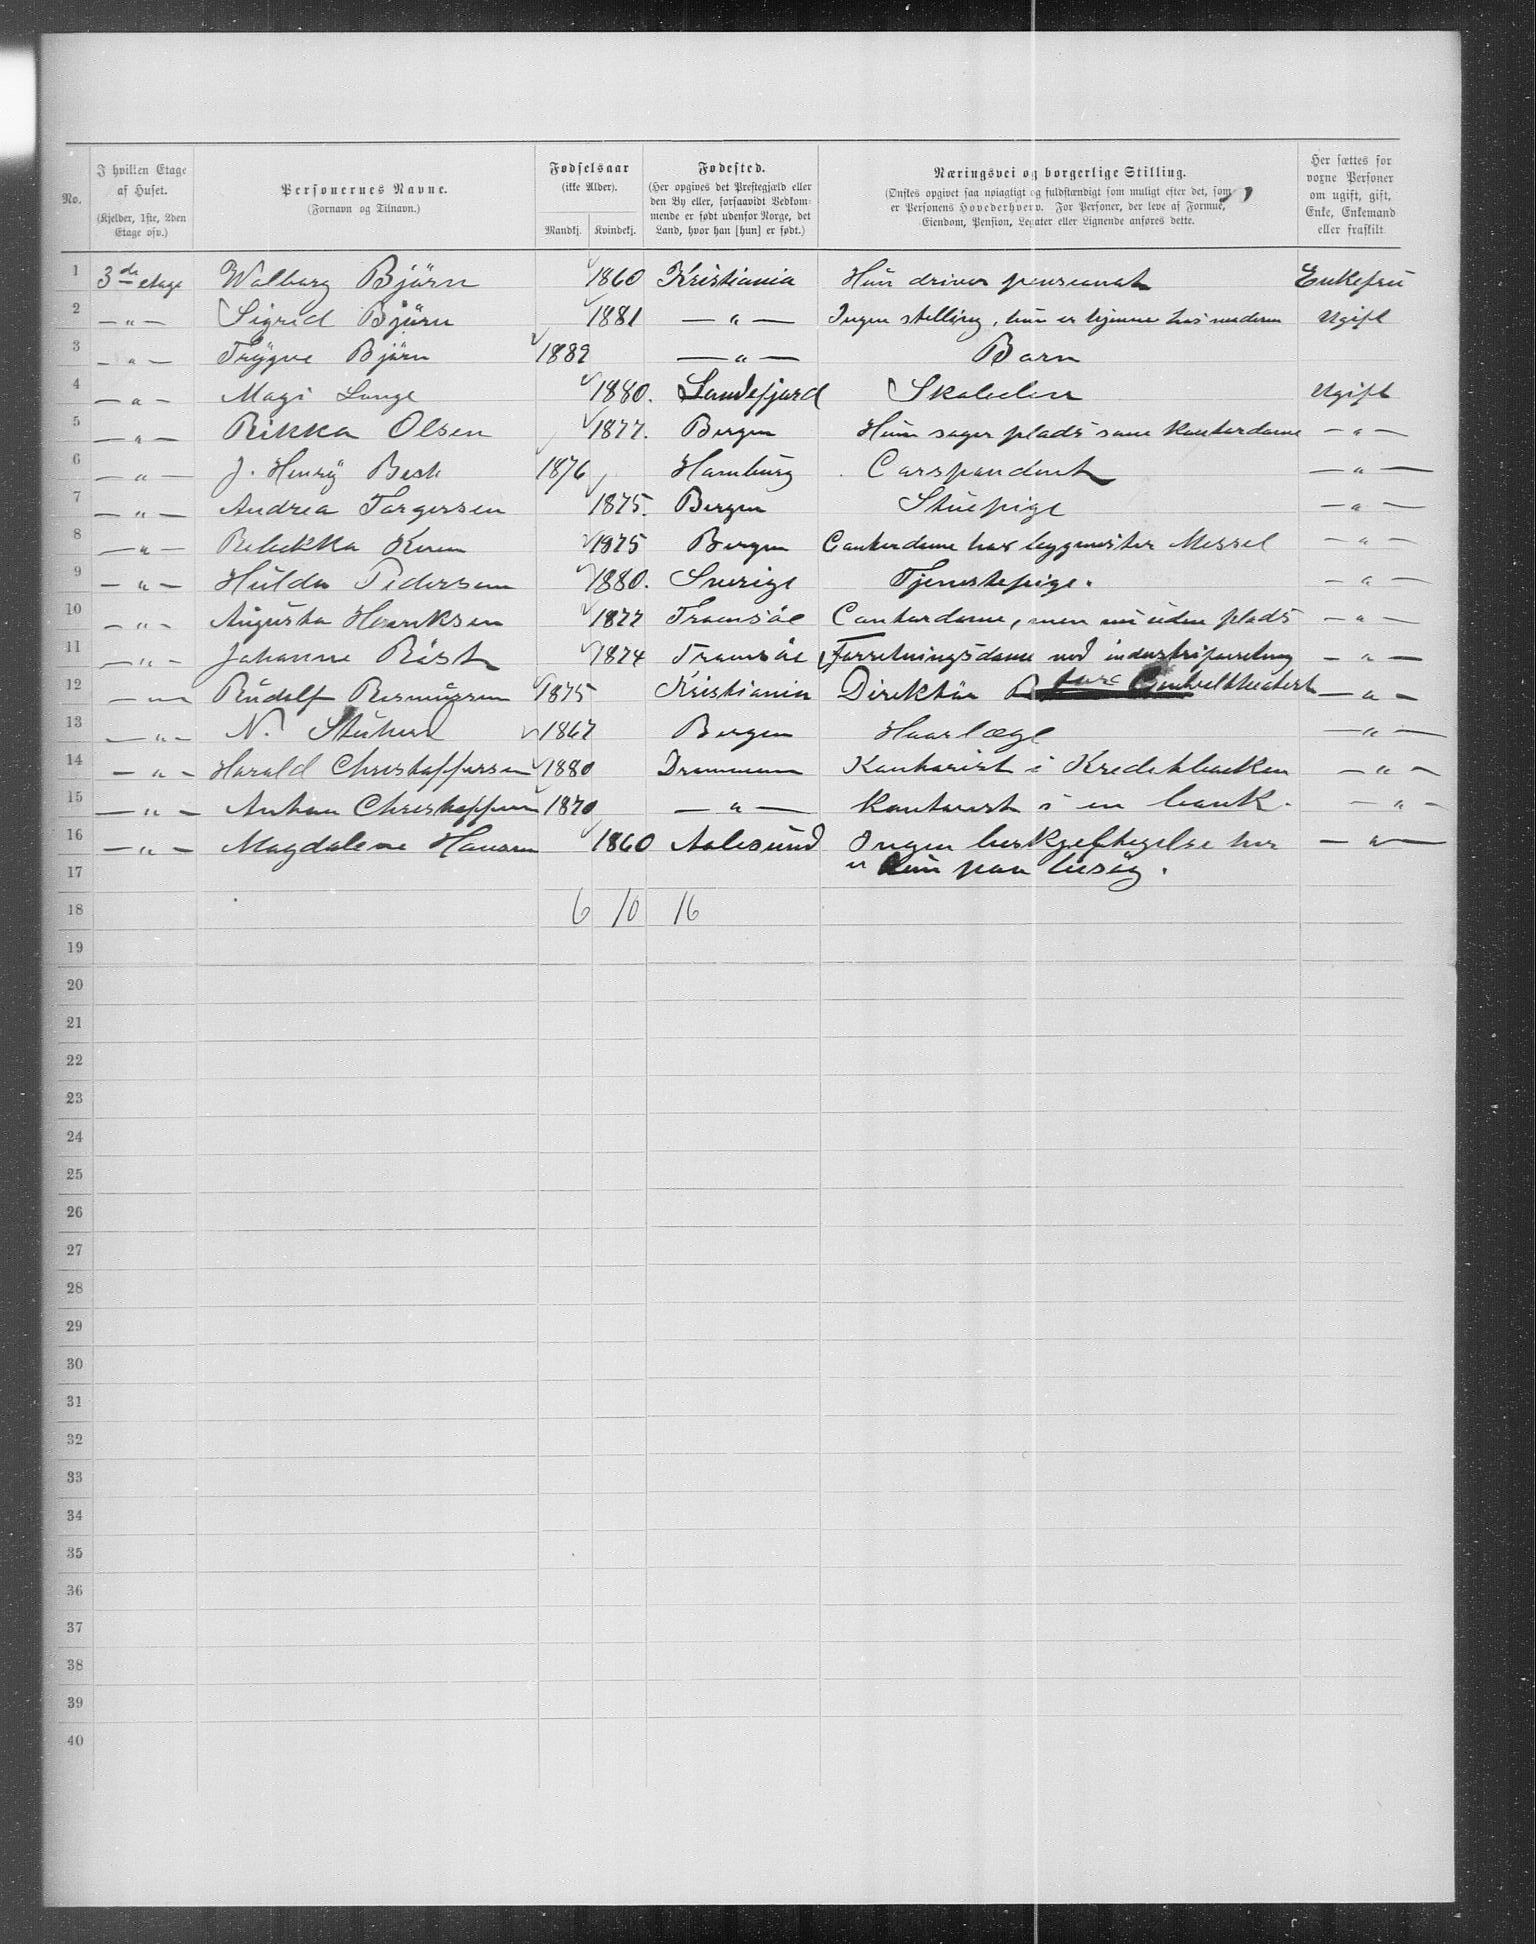 No. | I hvilken Etage af Huset. (Kjelder, 1ste, 2den Etage osv.) | Personernes Navne. (Fornavn og Tilnavn.) | Fødselsaar (ikke Alder). Mandkj. Kvindekj. | Fødested. (Her opgives det Prestegjæld eller den By eller, forsaavidt Vedkommende er født udenfor Norge, det Land, hvor han [hun] er født.) | Næringsvei og borgerlige Stilling. (Ønskes opgivet saa nøiagtigt og fuldstændigt som muligt efter det, som er Personens Hovederhverv. For Personer, der leve af Formue, Eiendom, Pension, Legater eller Lignende anføres dette. | Her sættes for voxne Personer om ugift, gift, Enke, Enkemand eller fraskilt
1 3de etage Walborg Björn 1860 Kristiania Hun driver pensionat Enkefru
2 — " — Sigrid Björn 1881 — " — Ingen stelling, hun er hjemme hos moderen Ugift
3 — " — Trygve Björn 1889 — " — Barn
4 — " — Magi Lange 1880. Sandefjord Skoleelev Ugift
5 — " — Rikka Olsen 1877. Bergen Hun søger plads som kontordame — " —
6 — " — J. Henry Besk 1876 Hamburg Corspondent — " —
7 — " — Andrea Torgersen 1875. Bergen Stuepige — " —
8 — " — Rebekka 1875 Bergen Contordame hos byggmester Messel — " —
9 — " — Hulda Pedersen 1880. Sverige Tjenestepige. — " —
10 — " — Augusta Henriksen 1877 Tromsöe Contordame, men nu uden plads — " —
11 — " — Johanne Röst 1874 Tromsöe Forretningsdame ved industriforretning — " —
12 — " — Rudolf Rasmussen 1875 Kristiania Direktör Centralteateret — " —
13 — " — N. 1867 Bergen Haarlæge — " —
14 — " — Harald Christoffersen 1880 Drammen Kontorist i Kreditbanken — " —
15 — " — Anton Christoffersen 1870 — " — Kontorist i en bank. — " —
16 — " — Magdalene Hansen 1860 Aalesund Ingen beskjeftigelse her — " —
17 er kun paa besøg.
18 6 10 16
19
20
21
22
23
24
25
26
27
28
29
30
31
32
33
34
35
36
37
38
39
40